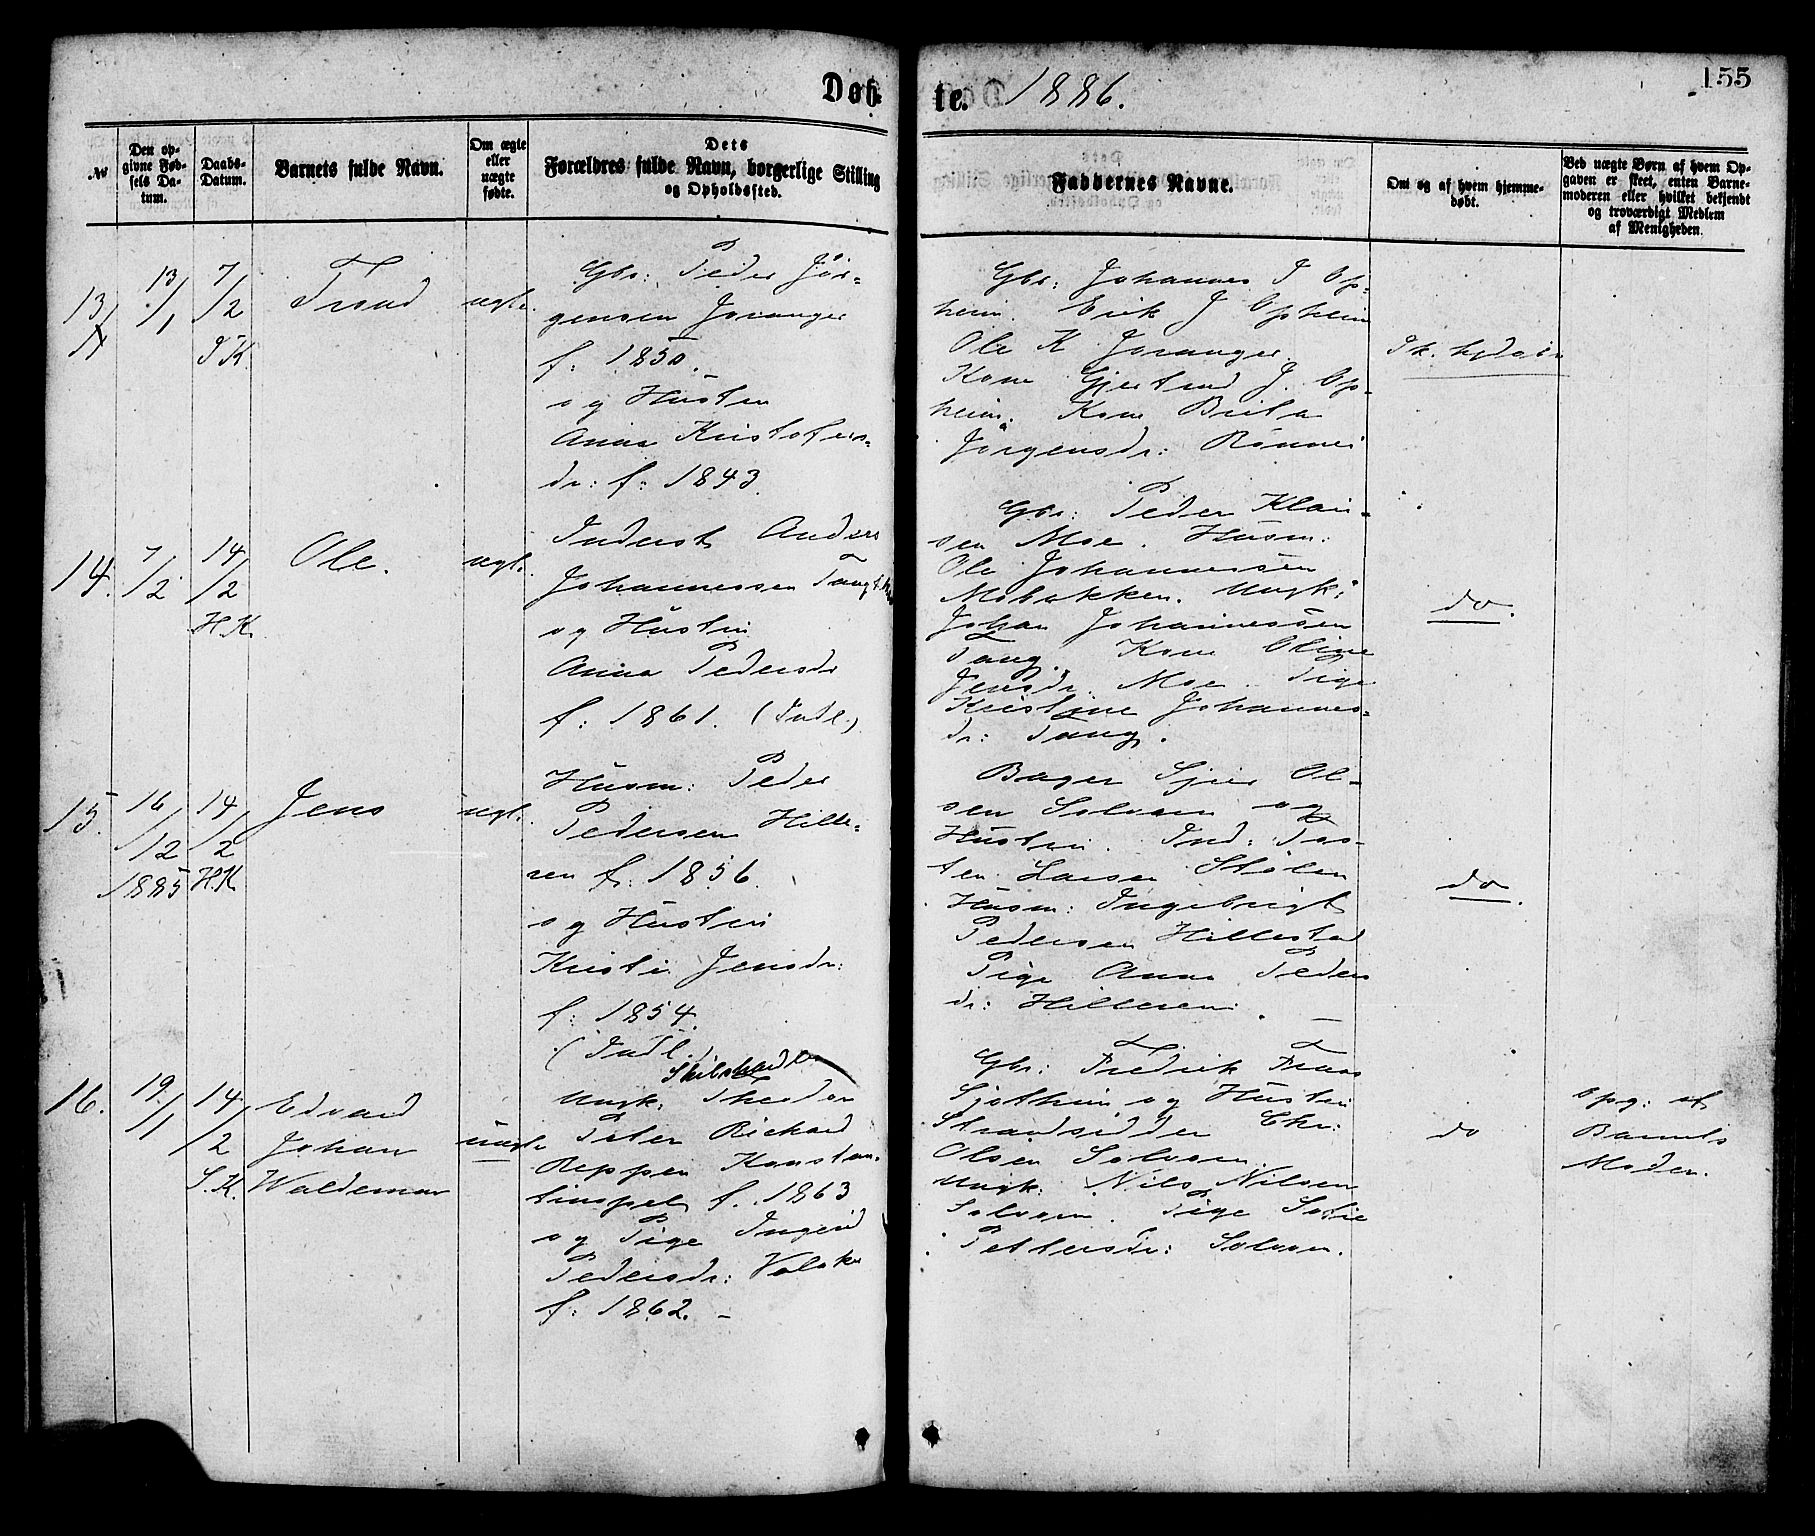 Døb-
te. 1886.
155
№
Den op-
givne Fød-
sels Da-
tum.
Daabs-
Datum.
Barnets fulde Navn.
Om ægte
eller
uægte
fødte.
Dets
Forældres fulde Navn, borgerlige Stilling
og Opholdssted.
Faddernes Navne.
Om og af hvem hjemme-
døbt.
Ved uægte Børn af hvem Op-
gaven er skeet, enten Barne-
moderen eller hvilket bekjendt
og troværdigt Medlem
af Menigheden.
13
13/1
7/2
Trond
ægte.
Gbr: Peder Jør-
gensen Joranger
f: 1850.
og Hustru
Anna Kristofers-
dr: f: 1843.
Gbr: Johannes J Op-
heim. Erik J Opheim
Ole K Joranger.
Kone Gjertrud J. Op-
heim. Kone Brita
Jørgensdr: Rønnei
14.
7/2
14/2
H.K.
Ole.
ægte.
Inderst Anders
Johannessen Tang
og Hustru
Anna Pedersdr
f: 1861. (Indl.)
Gbr: Peder Klau-
sen Moe. Husm:
Ole Johannessen
Mobakken. Ungk:
Johan Johannessen
Tang. Kone Oline
Jensdr. Moe. Pige
Kristine Johannes-
dr: Tang.
do.
15.
16/12
1885
14/2
H.K.
Jens
ægte.
Husm: Peder
Pedersen Hille-
ren f: 1856.
og Hustru
Kristi Jensdr:
f: 1854.
(Indl.)
Bager Sjur Ol-
sen Solvorn og
Hustru. Ind: Tos-
ten Larsen Stølen
Husm: Ingebrigt
Pedersen Hillestad
Pige Anna Peders
dr: Hilleren.
do.
16.
19/1
14/2
S.K.
Edvard
Johan
Waldemar
uægte
Ungk: Theodor
Peter Richard
Beppen Konstan-
tinopel f. 1863
og Pige Ingerid
Pedersdr: Volaker
f: 1862. -
Gbr: Fredrik Fraas
Sjøthun og Hustru
Strandsidder Chr:
Olsen Solvorn.
Ungk: Nils Nilsen
Solvorn. Pige Sofie
Pettersdr: Solvorn.
do
Opg: af
Barnets
Moder.